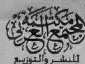 مكتبة المجتمع العربي
للنشر والتوزيع